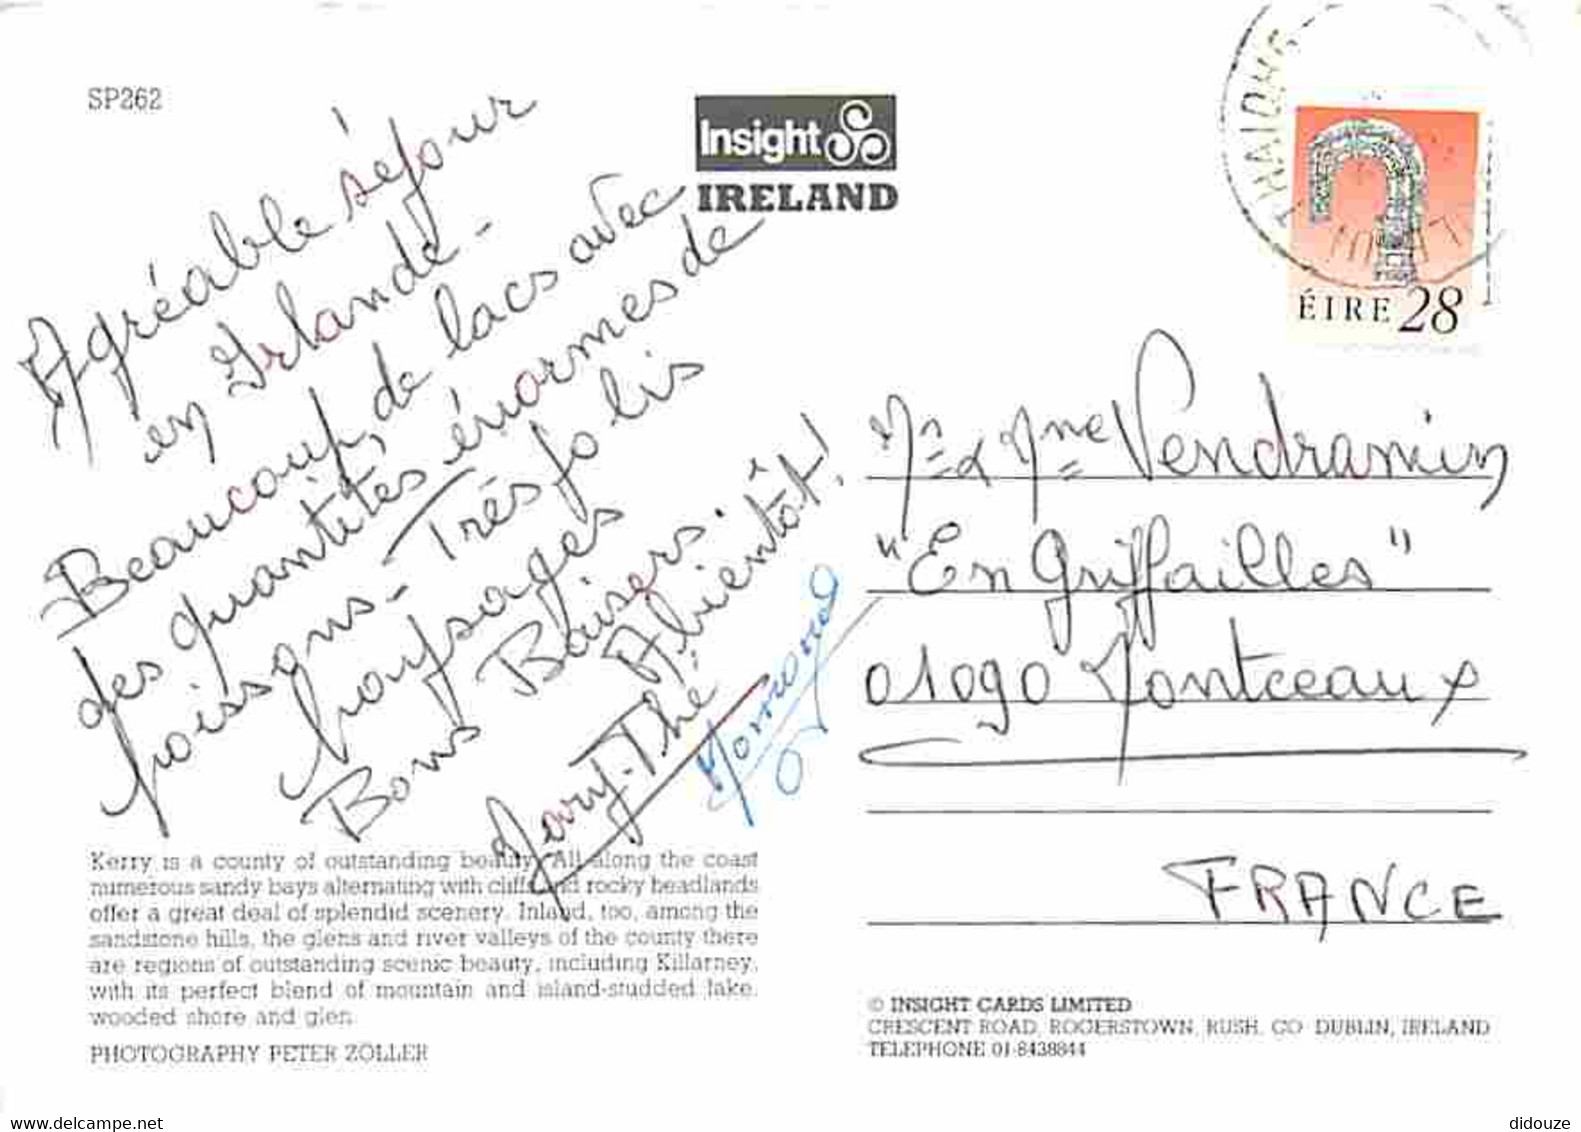 SP262
Insight
IRELAND
ÉIRE 28
Agréable séjour
en Irlande -
Beaucoup, de lacs avec
des quantités énormes de
poissons - Très jolis
paysages
Bons Baisers.
A bientôt!
Mary-Thé
Mr & Mme Vendramin
"En Griffailles"
01090 Montceaux
FRANCE
Kerry is a county of outstanding beauty. All along the coast
numerous sandy bays alternating with cliffs and rocky headlands
offer a great deal of splendid scenery. Inland, too, among the
sandstone hills, the glens and river valleys of the county there
are regions of outstanding scenic beauty, including Killarney,
with its perfect blend of mountain and island-studded lake,
wooded shore and glen.
PHOTOGRAPHY PETER ZOLLER
© INSIGHT CARDS LIMITED
CRESCENT ROAD, ROGERSTOWN, RUSH, CO DUBLIN, IRELAND
TELEPHONE 01-8438844
delcampe.net
didouze